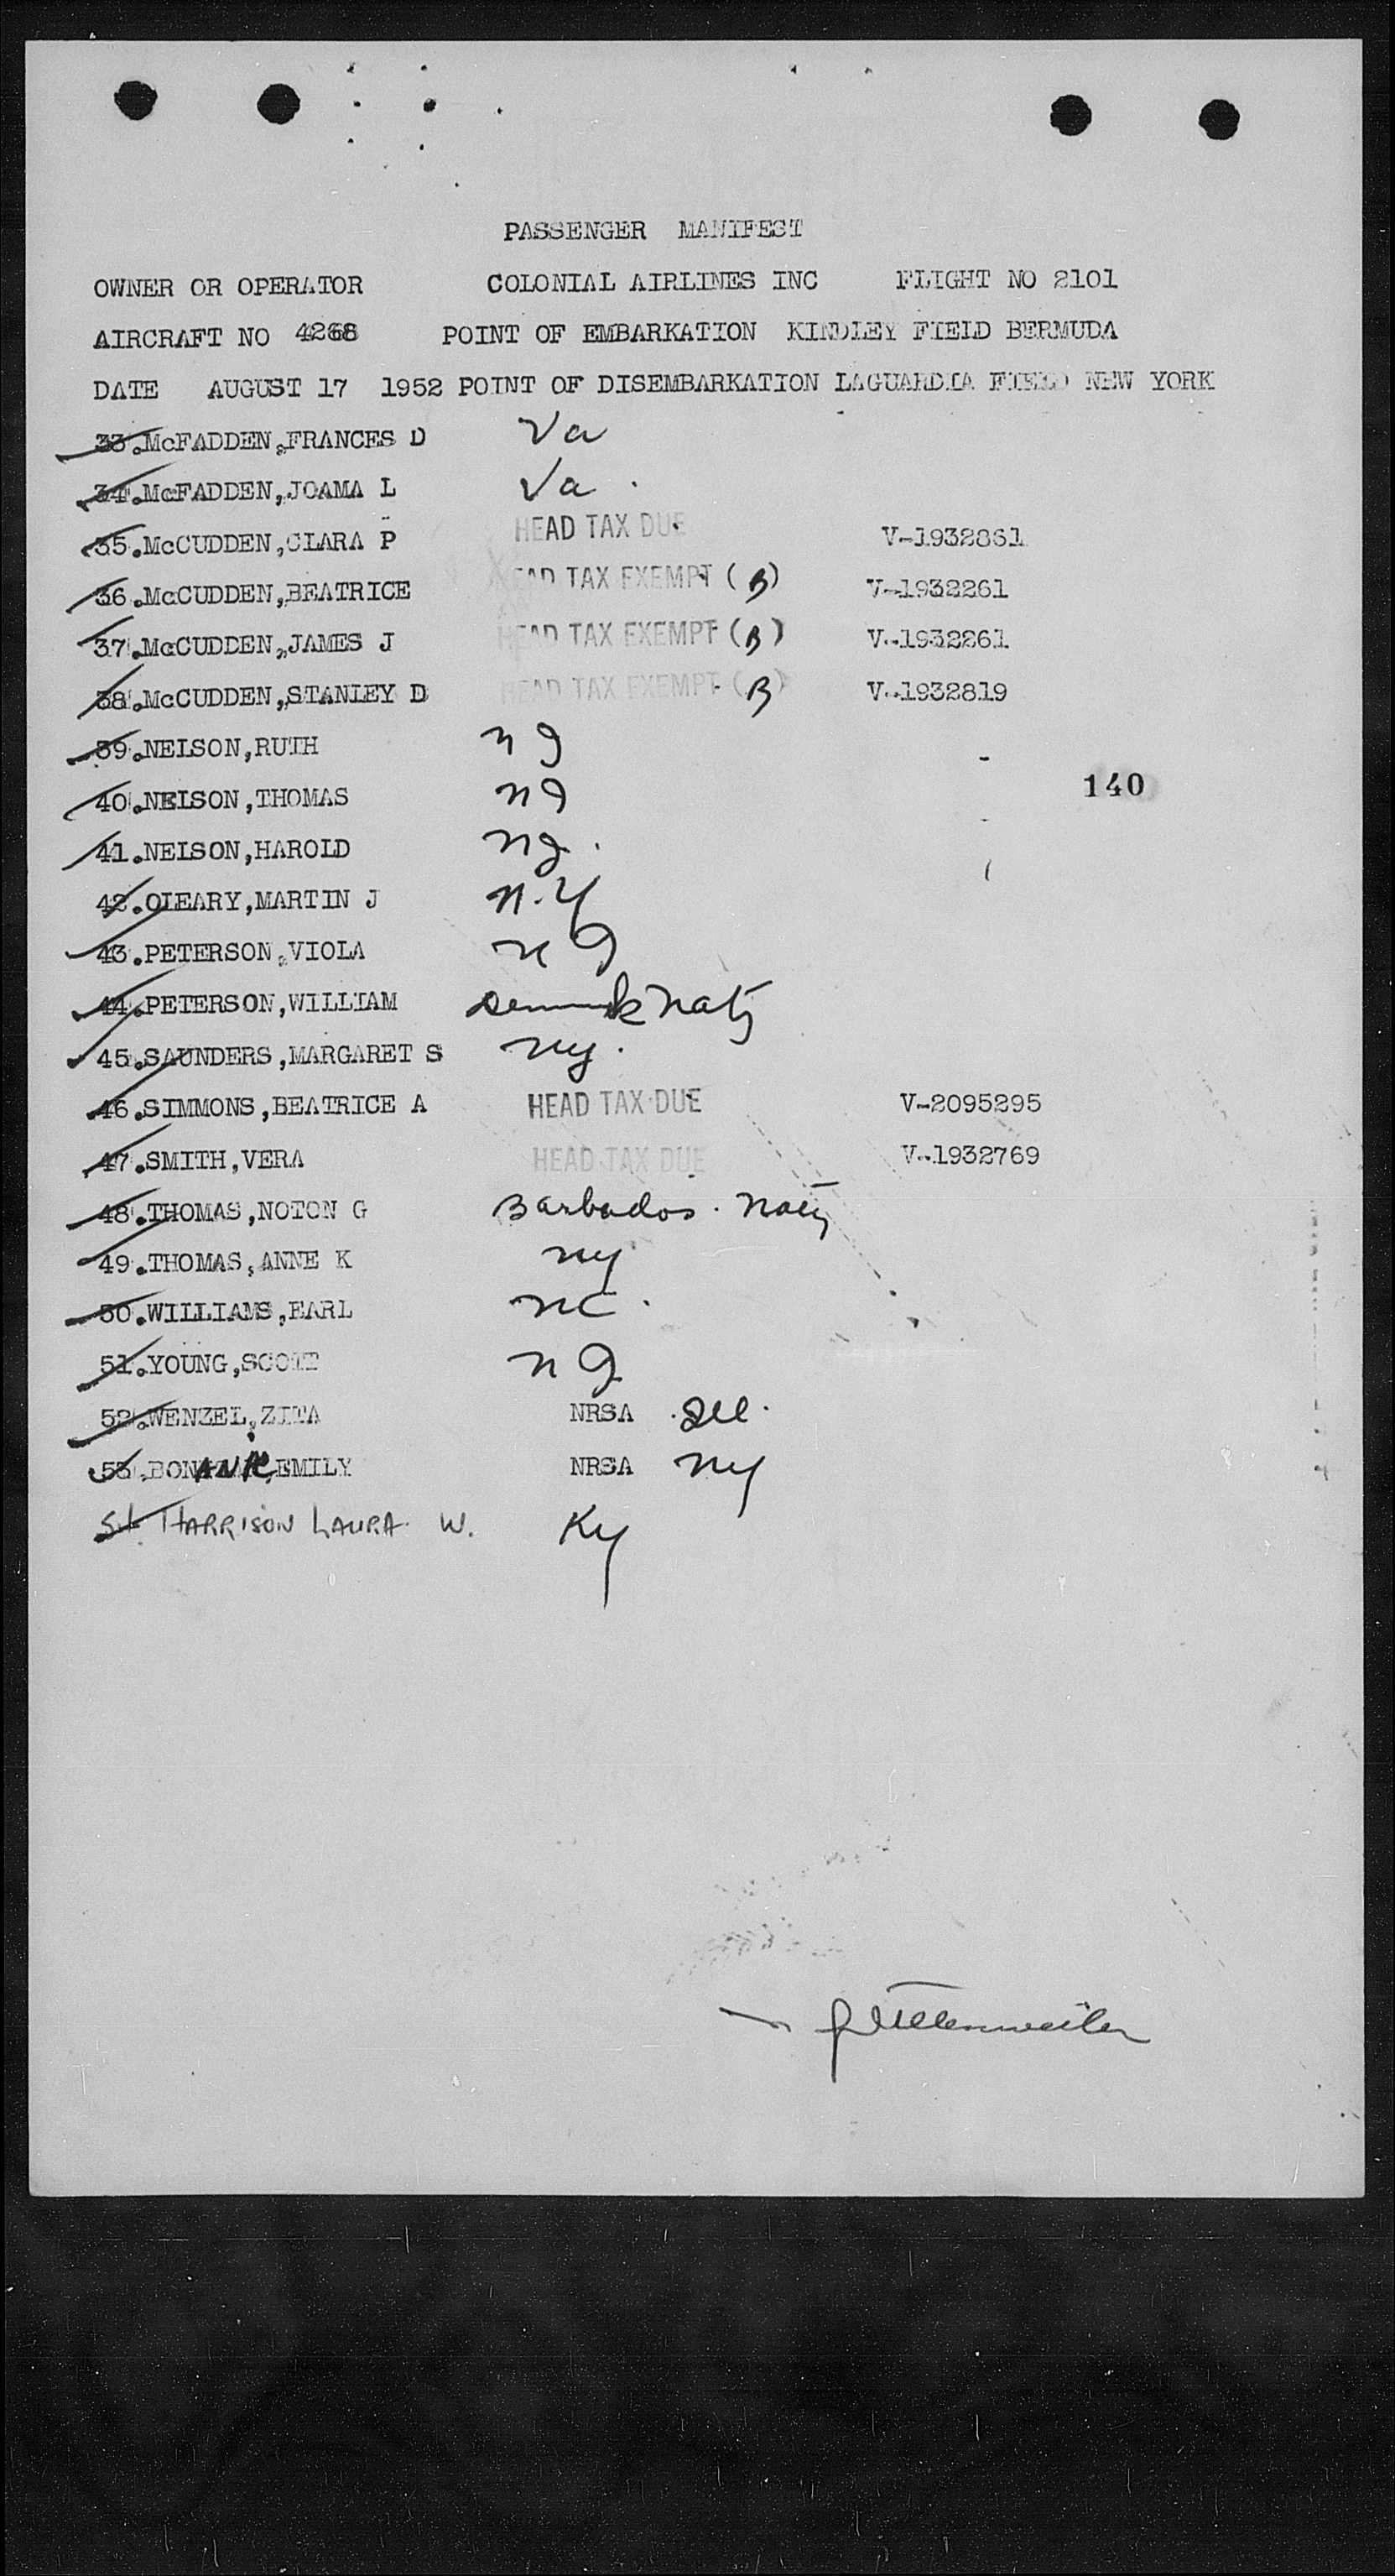 PASSENGER MANIFEST
OWNER OR OPERATOR COLONIAL AIRLINES INC FLIGHT NO 2101
AIRCRAFT NO 4268 POINT OF EMBARKATION KINDLEY FIELD BERMUDA
DATE AUGUST 17 1952 POINT OF DISEMBARKATION LAGUARDIA FIELD NEW YORK
33.McFADDEN,FRANCES D Va
34.McFADDEN,JOAMA L Va.
35.McCUDDEN,CLARA P HEAD TAX DUE V-1932861
36.McCUDDEN,BEATRICE HEAD TAX EXEMPT (B) V-1932261
37.McCUDDEN,JAMES J HEAD TAX EXEMPT (B) V-1932261
38.McCUDDEN,STANLEY D HEAD TAX EXEMPT (B) V-1932819
39.NELSON,RUTH NJ
40.NELSON,THOMAS NJ
140
41.NELSON,HAROLD NJ.
42.OLEARY,MARTIN J N.Y
43.PETERSON,VIOLA NJ
44.PETERSON,WILLIAM Denmark Natz
45.SAUNDERS,MARGARET S NY.
46.SIMMONS,BEATRICE A HEAD TAX DUE V-2095295
47.SMITH,VERA HEAD TAX DUE V-1932769
48.THOMAS,NOTON G Barbados. Natz
49.THOMAS,ANNE K NY
50.WILLIAMS,EARL NC.
51.YOUNG,SCOTT NJ
52.WENZEL,ZITA NRSA
53. EMILY NRSA NY
54 HARRISON LAURA W. Ky